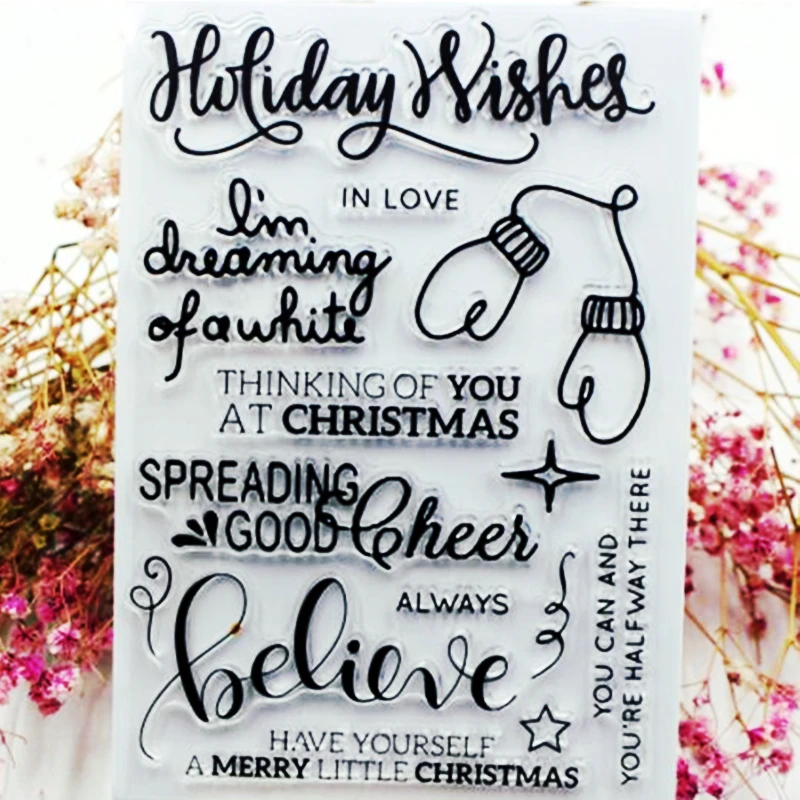 Holiday Wishes
IN LOVE
I'm
dreaming
of a white
THINKING OF YOU
AT CHRISTMAS
SPREADING
GOOD Cheer
ALWAYS
believe
YOU CAN AND
YOU'RE HALFWAY THERE
HAVE YOURSELF
A MERRY LITTLE CHRISTMAS